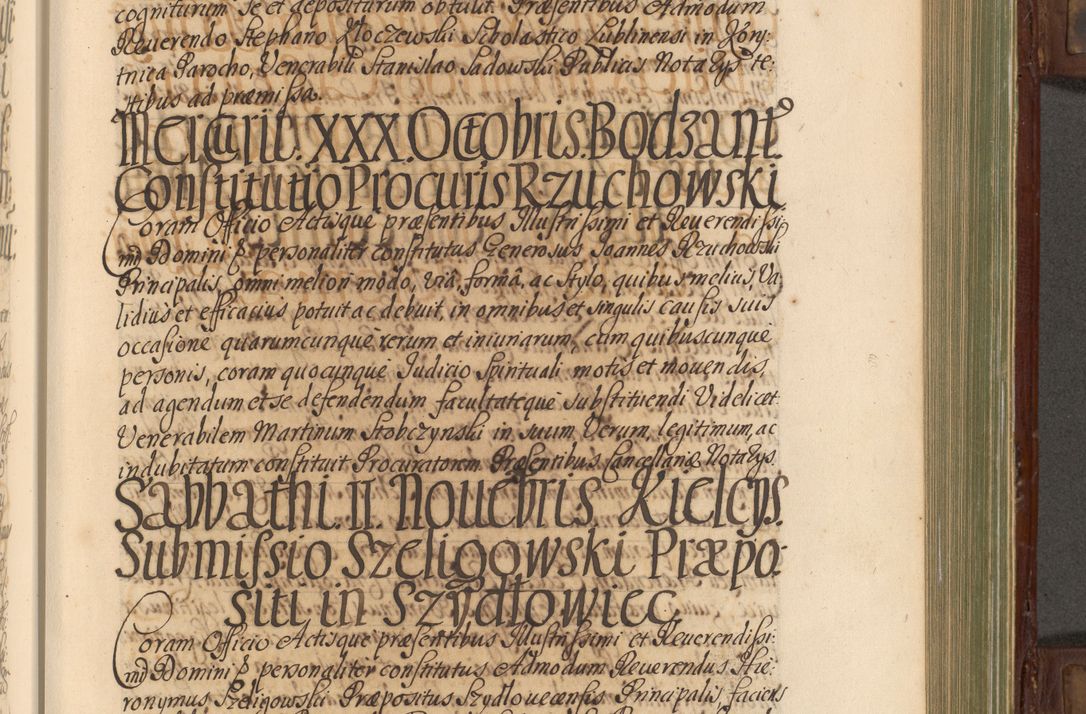 cogniturum se et depositurum obtulit. Præsentibus Admodum
Reuerendo Stephano Złoczewski Scholastico Lublinensi in Kory-
tnica Parocho, Venerabili Stanislao Sadowski Publicis Notarys te-
stibus ad præmissa.
Mercurii. XXX. Octobris. Bodzant.
Constitutio Procuris Rzuchowski
Coram Officio Actisque præsentibus Illustrissimi et Reuerendissi-
mi Domini personaliter constitutus Generosus Joannes Rzuchowski
Principalis, omni meliori modo, via, forma, ac stylo, quibus melius, Va-
lidius et efficacius potuit ac debuit, in omnibus et singulis causis suis
occasione quarumcunque rerum et iniuriarum, cum quibuscunque
personis, coram quocunque Judicio Spirituali motis et mouendis,
ad agendum et se defendendum facultateque substituendi Videlicet
Venerabilem Martinum Stobczynski in suum Verum, legitimum, ac
indubitatum constituit Procuratorem. Præsentibus Cancellariæ Notarys
Sabbathi. II Nouebris Kielcys.
Submissio Szeligowski Præpo-
siti in Szydłowiec
Coram Officio Actisque præsentibus Illustrissimi et Reuerendissi-
mi Domini personaliter constitutus Admodum Reuerendus Hie-
ronymus Szeligowski Præpositus Szydlouecensis Principalis, faciens